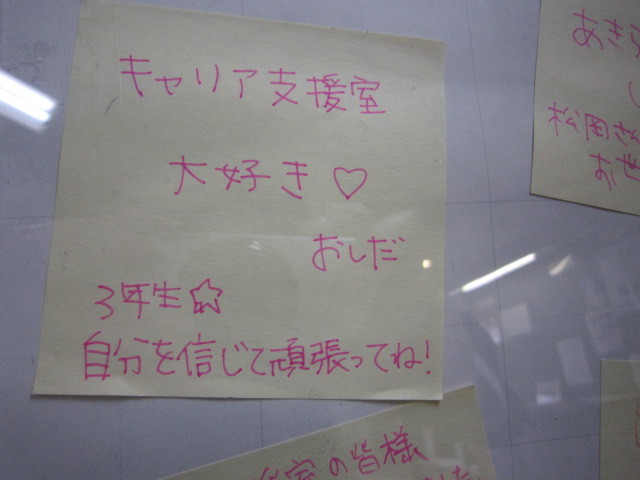 キャリア支援室
大好き♡
おしだ
3年生☆
自分を信じて頑張ってね!
あき
し
松岡さん
お世
室の皆様